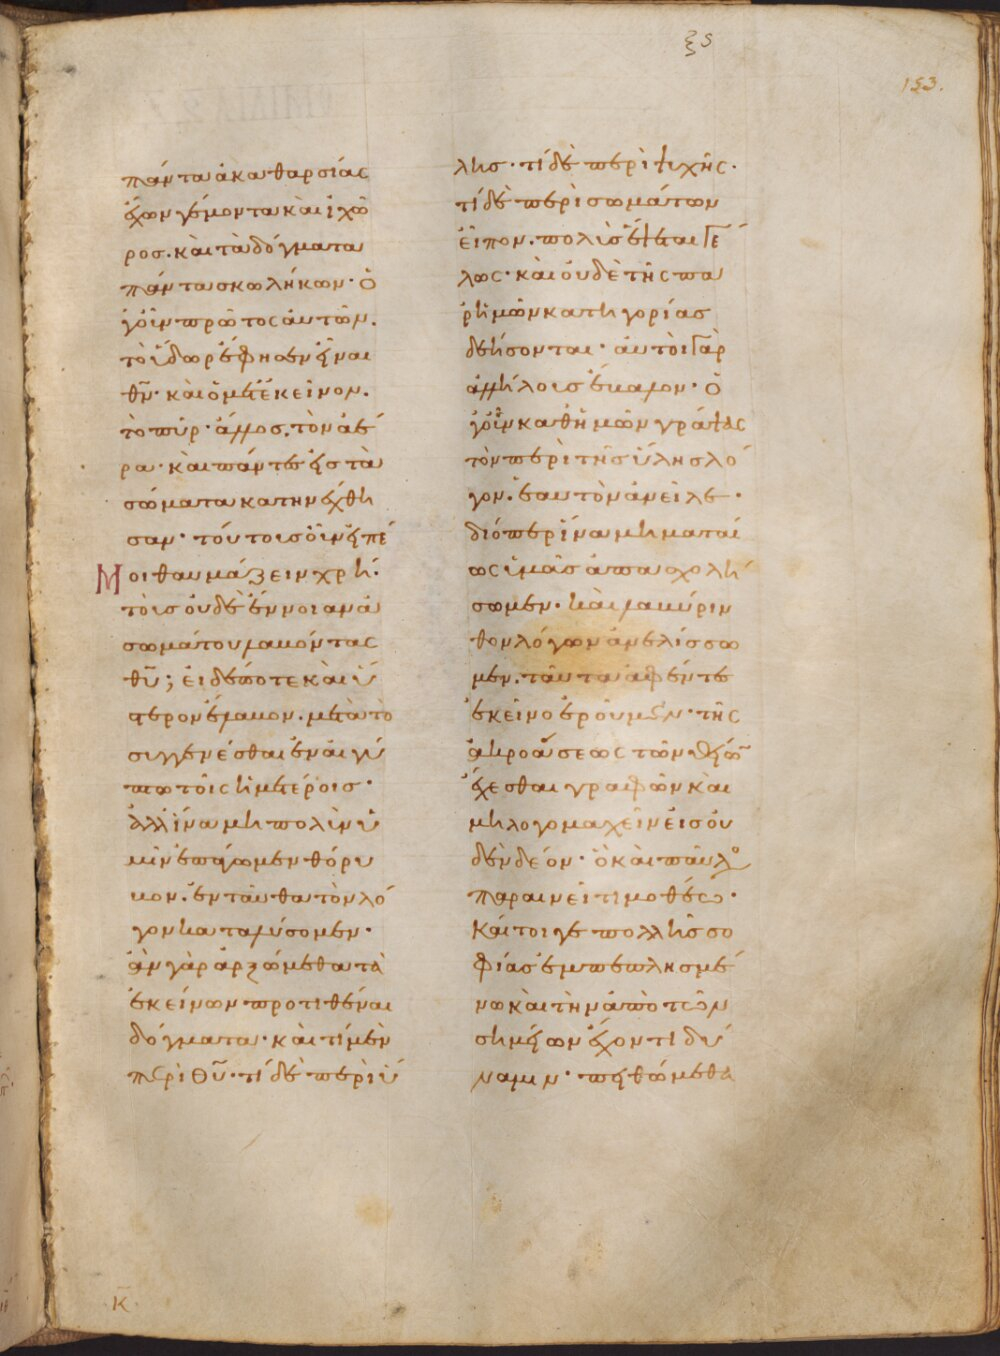 ξς
153.
πάντα ἀκαθαρσίας
ἔχων γέμοντα καὶ ἰχῶ
ρος. καὶ τὰ δόγματα
πάντα σκωλήκων· ὁ
γοῦν πρῶτος αὐτῶν.
τὸ ὕδωρ ἔφησεν εἶναι
θν̅· καὶ ὁ μετ' ἐκεῖνον.
τὸ πῦρ· ἄλλος, τὸν ἀέ
ρα· καὶ πάντες εἰς τὰ
σώματα κατηνέχθη
σαν· τούτοις οὖν εἰπέ
Μοι θαυμάζειν χρή·
τοῖς οὐδὲ ἔννοιαν ἀ
σωμάτου λαμόντας
θυ̅; εἰ δέ ποτε καὶ ὕ
στερον ἔλαμον. μετὰ τὸ
συγγενέσθαι ἐν αἰγύ
πτω τοῖς ἡμετέροις·
ἀλλ' ἵνα μὴ πολὺν ὑ
μῖν ἐπάγωμεν θόρυ
μον. ἐνταῦθα τὸν λό
γον καταλύσομεν·
ἂν γὰρ ἀρξώμεθα τὰ
ἐκείνων προτιθέναι
δόγματα· καὶ τί μὲν
περὶ θυ̅· τί δὲ περὶ ὕ
λης· τί δὲ περὶ ψυχῆς·
τί δὲ περὶ σωμάτων
εἶπον. πολὺς ἕψεται γέ
λως· καὶ οὐδὲ τῆς πα
ρ' ἡμῶν κατηγορίας
δεήσονται· αὐτοὶ γὰρ
ἀλλήλους ἔμαλον· ὁ
γοῦν καθ' ἡμῶν γράψας
τὸν περὶ τῆς ὕλης λό
γον. ἑαυτὸν ἀνεῖλε·
διόπερ ἵνα μὴ ματαί
ως ὑμᾶς ἀπασχολή
σωμεν· καὶ λαμύριν
θον λόγων ἀνελίσσω
μεν. ταῦτα ἀφέντες
ἐκεῖνο ἐροῦμεν· τῆς
ἀκροάσεως τῶν θείω̅
ἔχεσθαι γραφῶν καὶ
μὴ λογομαχεῖν εἰς οὐ
δὲν δέον· ὃ καὶ παῦλο
παραινεῖ τιμοθέω·
Καί τοι γε πολλῆς σο
φίας ἐμπεπλησμέ
νω καὶ τὴν ἀπὸ τῶν
σημείων ἔχοντι δύ
ναμιν· πειθώμεθα
Κ̅